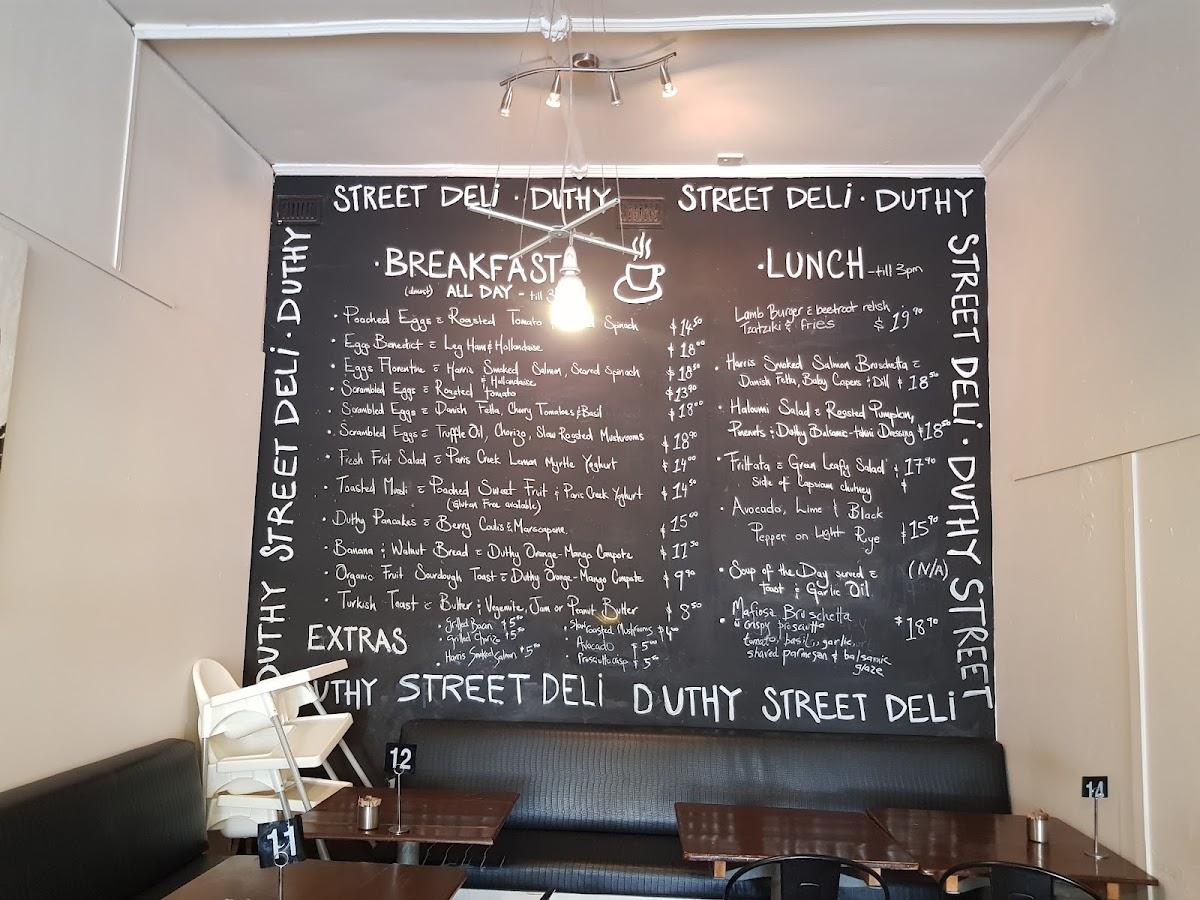 STREET DELI · DUTHY
STREET DELI · DUTHY
STREET DELI · DUTHY
DUTHY
· BREAKFAST
(almost) ALL DAY - till
· Poached Eggs c Roasted Tomato Spinach $14.50
· Eggs Benedict c Leg Ham & Hollandaise $18.00
· Eggs Florentine c Harris Smoked Salmon, Seared Spinach $18.50
& Hollandaise
· Scrambled Eggs c Roasted Tomato $13.90
· Scrambled Eggs c Danish Fetta, Cherry Tomatoes & Basil $18.00
· Scrambled Eggs c Truffle Oil, Chorizo, Slow Roasted Mushrooms $18.90
· Fresh Fruit Salad c Paris Creek Lemon Myrtle Yoghurt $14.00
· Toasted Muesli c Poached Sweet Fruit & Paris Creek Yoghurt $14.50
(Gluten Free available)
· Duthy Pancakes c Berry Coulis & Marscapone. $15.00
· Banana & Walnut Bread c Duthy Orange-Mango Compote $11.50
· Organic Fruit Sourdough Toast c Duthy Orange-Mango Compote $9.90
· Turkish Toast c Butter & Vegemite, Jam or Peanut Butter $8.50
EXTRAS
· Grilled Bacon $5.50
· Grilled Chorizo $5.50
· Harris Smoked Salmon $5.00
· Slow roasted Mushrooms $4.00
Avocado $5.00
· Prosciutto crisp $5.50
· LUNCH - till 3pm
Lamb Burger c beetroot relish
Tzatziki & fries $19.90
· Harris Smoked Salmon Bruschetta c
Danish Fetta, Baby Capers & Dill $18.50
· Haloumi Salad c Roasted Pumpkin,
Pinenuts & Duthy Balsamic-tahini Dressing $18.50
· Frittata c Green Leafy Salad $17.90
side of chutney $
· Avocado, Lime & Black
Pepper on Light Rye $15.90
· Soup of the Day served c (N/A)
toast & Garlic Oil
· Mafiosa Bruschetta $18.90
w crispy prosciutto
tomato, basil, garlic,
shaved parmesan & balsamic
glaze
STREET DELI · DUTHY STREET
DUTHY STREET DELI
DUTHY STREET DELI
12
11
14